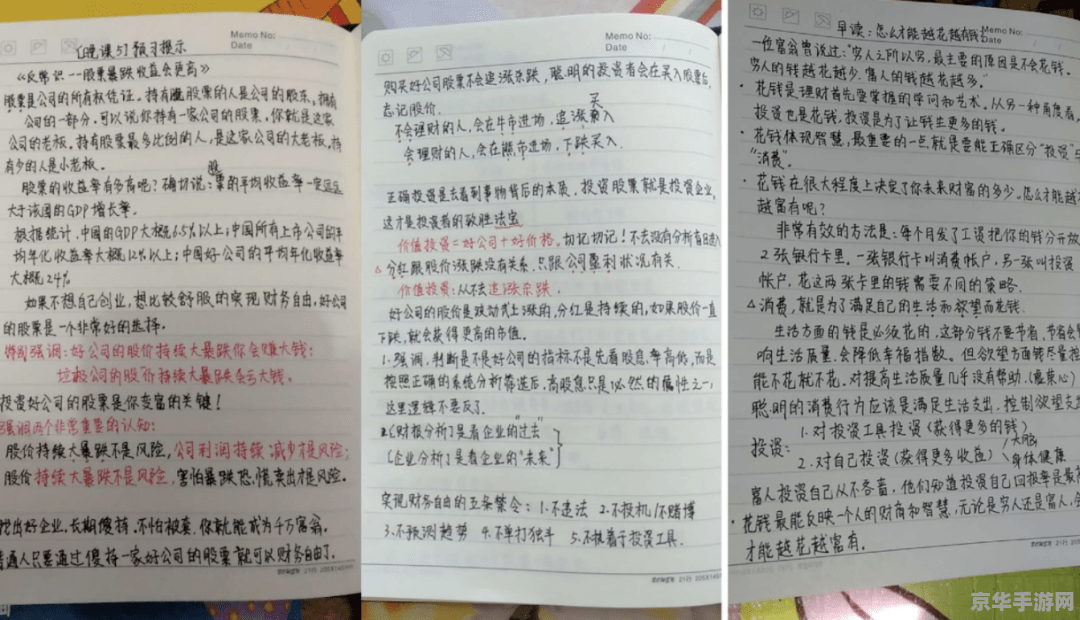 Memo No:
Date
[晚课5] 预习提示
《反常识——股票暴跌收益会更高》
股票是公司的所有权凭证。持有股票的人是公司的股东，拥有
公司的一部分，可以说你持有一家公司的股票，你就是这家
公司的老板，持有股票最多比例的人，是这家公司的大老板，持
有少的人是小老板。
股票的收益率有多高呢？确切说：股票的平均收益率一定远远
大于该国的GDP增长率。
根据统计，中国的GDP大概6.5%以上；中国所有上市公司的平
均年化收益率大概12%以上；中国好公司的平均年化收益率
大概24%
如果不想自己创业，想比较舒服的实现财务自由，好公司
的股票是一个非常好的选择。
特别强调：好公司的股价持续大暴跌你会赚大钱；
垃圾公司的股价持续大暴跌会亏大钱。
投资好公司的股票是你变富的关键！
强调两个非常重要的认知：
股价持续大暴跌不是风险，公司利润持续减少才是风险；
股价持续大暴跌不是风险，害怕暴跌恐慌卖出才是风险。
找出好企业，长期傻持，不怕被套，你就能成为千万富翁。
普通人只要通过傻持一家好公司的股票就可以财务自由了。
Memo No:
Date
购买好公司股票不会追涨杀跌，聪明的投资者会在买入股票后，
忘记股价。
不会理财的人，会在牛市进场，追涨买入
会理财的人，会在熊市进场，下跌买入.
正确投资是去看到事物背后的本质。投资股票就是投资企业，
这才是投资者的致胜法宝
价值投资=好公司+好价格。切记切记！不去没有分析盲目进入
△分红跟股价涨跌没有关系，只跟公司盈利状况有关.
价值投资：从不去追涨杀跌.
好公司的股价是跳动式上涨的，分红是持续的，如果股价一直
下跌，就会获得更高的市值。
1.强调，判断是不是好公司的指标不是先看股息率高低，而是
按照正确的系统分析筛选后，高股息只是必然的属性之一，
这里逻辑不要反了。
2.(财报分析)是看企业的"过去"
(企业分析)是看企业的"未来"
实现财务自由的五条禁令：1.不违法 2.不投机/不赌博
3.不预测趋势 4.不单打独斗 5.不执着于投资工具.
Memo No:
Date
早读：怎么才能越花越有钱?
一位富翁曾说过："穷人之所以穷，最主要的原因是不会花钱。
穷人的钱越花越少，富人的钱越花越多。"
·花钱是理财首先要掌握的学问和艺术。从另一种角度看，
投资也是花钱，投资是为了让钱生更多的钱。
·花钱体现智慧，最重要的一点就是要能正确区分"投资"与
"消费"。
·花钱在很大程度上决定了你未来财富的多少。怎么才能越
越富有呢？
非常有效的方法是：每个月发了工资把你的钱分开放
2张银行卡里。一张银行卡叫消费帐户，另一张叫投资
帐户，花这两张卡里的钱需要不同的策略.
△消费，就是为了满足自己的生活和欲望而花钱.
生活方面的钱是必须花的，这部分钱不要节省，节省会影
响生活质量，会降低幸福指数。但欲望方面够尽量控
能不花就不花。对提高生活质量几乎没有帮助.(虚荣心)
聪明的消费行为应该是满足生活支出，控制欲望支
投资：1.对投资工具投资(获得更多的钱)
2.对自己投资(获得更多收益) 大脑
身体健康
富人投资自己从不吝啬，他们知道投资自己回报率是最
·花钱最能反映一个人的财商和智慧，无论是穷人还是富人，
才能越花越富有.
京华手游网